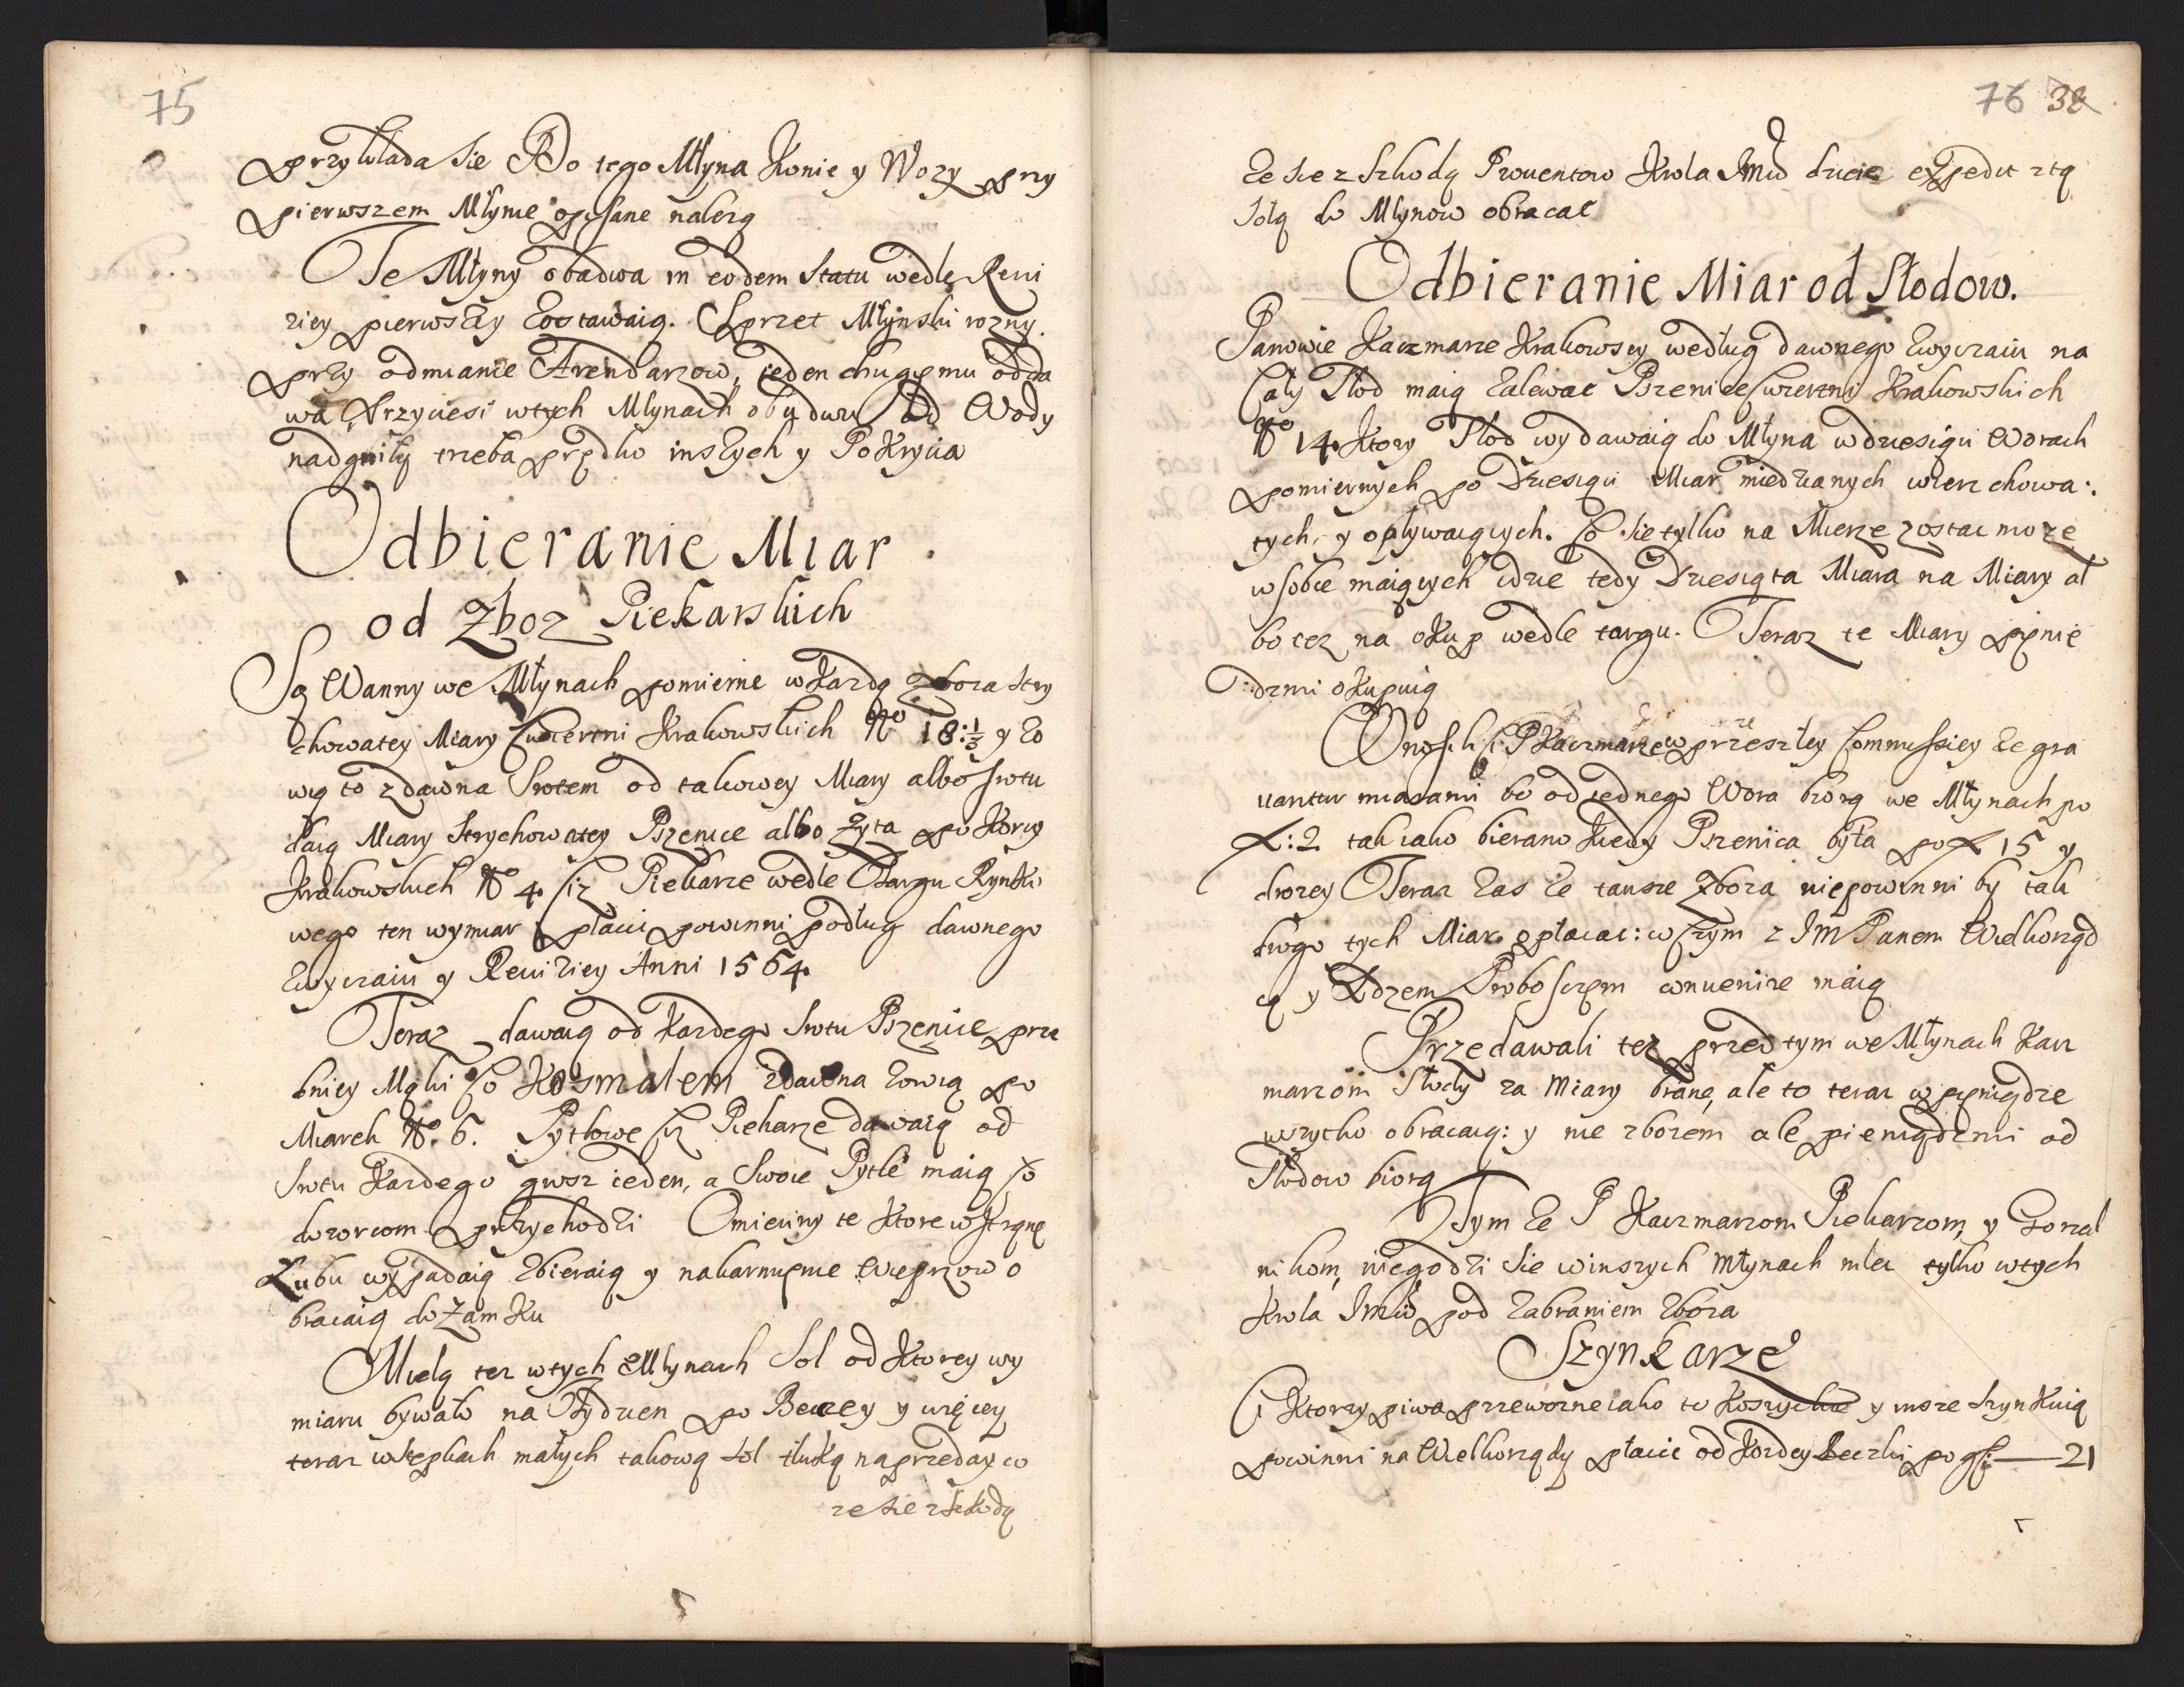 75
przykłada sie Do tego Młyna Konie y Wozy przy
pierwszem Młynie opisane należą
Te Młyny obadwa in eodem Statu wedle Rewi
ziey pierwszey Zostawaią. Sprzet Młynski rozny
przy odmianie Arendarzow, ieden drugiemu odda
wa Przyciesi wtych Młynach obudwu od Wody
nadgniły trzeba prędko inszych y Pokrycia
Odbieranie Miar
od Zboz Piekarskich
Są Wanny we Młynach pomierne w Kazdą zboza stry
chowatey Miary Cwierttni Krakowskich No 18:½ y Zo
wią to zdawna Srotem od takowey Miary albo Srotu
daią Miary Strychowatey Pszenice albo Zyta po Korcy
Krakowskich No 4. Ciz Piekarze wedle Targu Rynko
wego ten wymiar płacic powinni podług dawnego
Zwyczaiu y Rewiziey Anni 1564.
Teraz dawaią od Kazdego Srotu Pszenice prze
dniey Mąki Co Kosmalem zdawna Zowią po
Miarek No. 6. Pytlowe Ciz Piekarze dawaią od
Srotu Kazdego grosz ieden, a Swoie Pytle maią Co
dozorcom przychodzi Omieciny te Ktore w Skrzynę
Lubu wypadaią Zbieraią y nakarmienie Wieprzow o
bracaią do Zamku
Mielą tez wtych Młynach Sol od Ktorey wy
miaru bywało na Tydzien po Beczcy y więcey
teraz wstępkach małych takową sol tłuką naprzedayco
ze sie zszkodą
76 38
Ze sie z Szkodą Prouentow Krola Jmci dzieie expedit ztą
Solą do Młynow obracac
Odbieranie Miar od Słodow.
Panowie Kaczmarze Krakowscy według dawnego Zwyczaiu na
Cały Słod maią Zalewac Pszenice Cwierttni Krakowskich
No 14. Ktory Słod wydawaią do Młyna wdziesiąci Worach
pomiernych po Dziesiąci Miar miedzianych wierzchowa:
tych, y opływaiących. Co sie tylko na Mierze zostac może
w sobie maiących idzie tedy Dziesiąta Miara na Miary al
bo tez na okup wedle targu. Teraz te Miary pienię
:dzmi okupuią
Wnosili Ci P Kaczmarze w przeszłey Commissiey Ze gra
uantur miarami bo od iednego Wora biorą we Młynach po
f:2 tak iako bierano Kiedy Pszenica była po f 15 y
drozey Teraz Zas Ze tansze Zboza niepowinni by tak
drogo tych Miar opłacac: w Czym z JM Panem Wielkorząd
cą y Xdzem Proboszczem conuenire maią
Przedawali tez przed tym we Młynach Kacz
marzom Słody za Miary brane, ale to teraz w pieniądze
wszytko obracaią: y nie zbozem ale pieniądzmi od
Słodow biorą
Tym Ze P Kaczmarzom Piekarzom, y Gorzal
nikom, niegodzi sie winszych Młynach mlec tylko wtych
Krola Jmci pod Zabraniem Zboza
Szynkarze
Ci Ktorzy piwa przewozne iako to Koszyckie y insze Szynkuią
powinni na Wielkorządy płacic od Kozdey Beczki po gr:—21